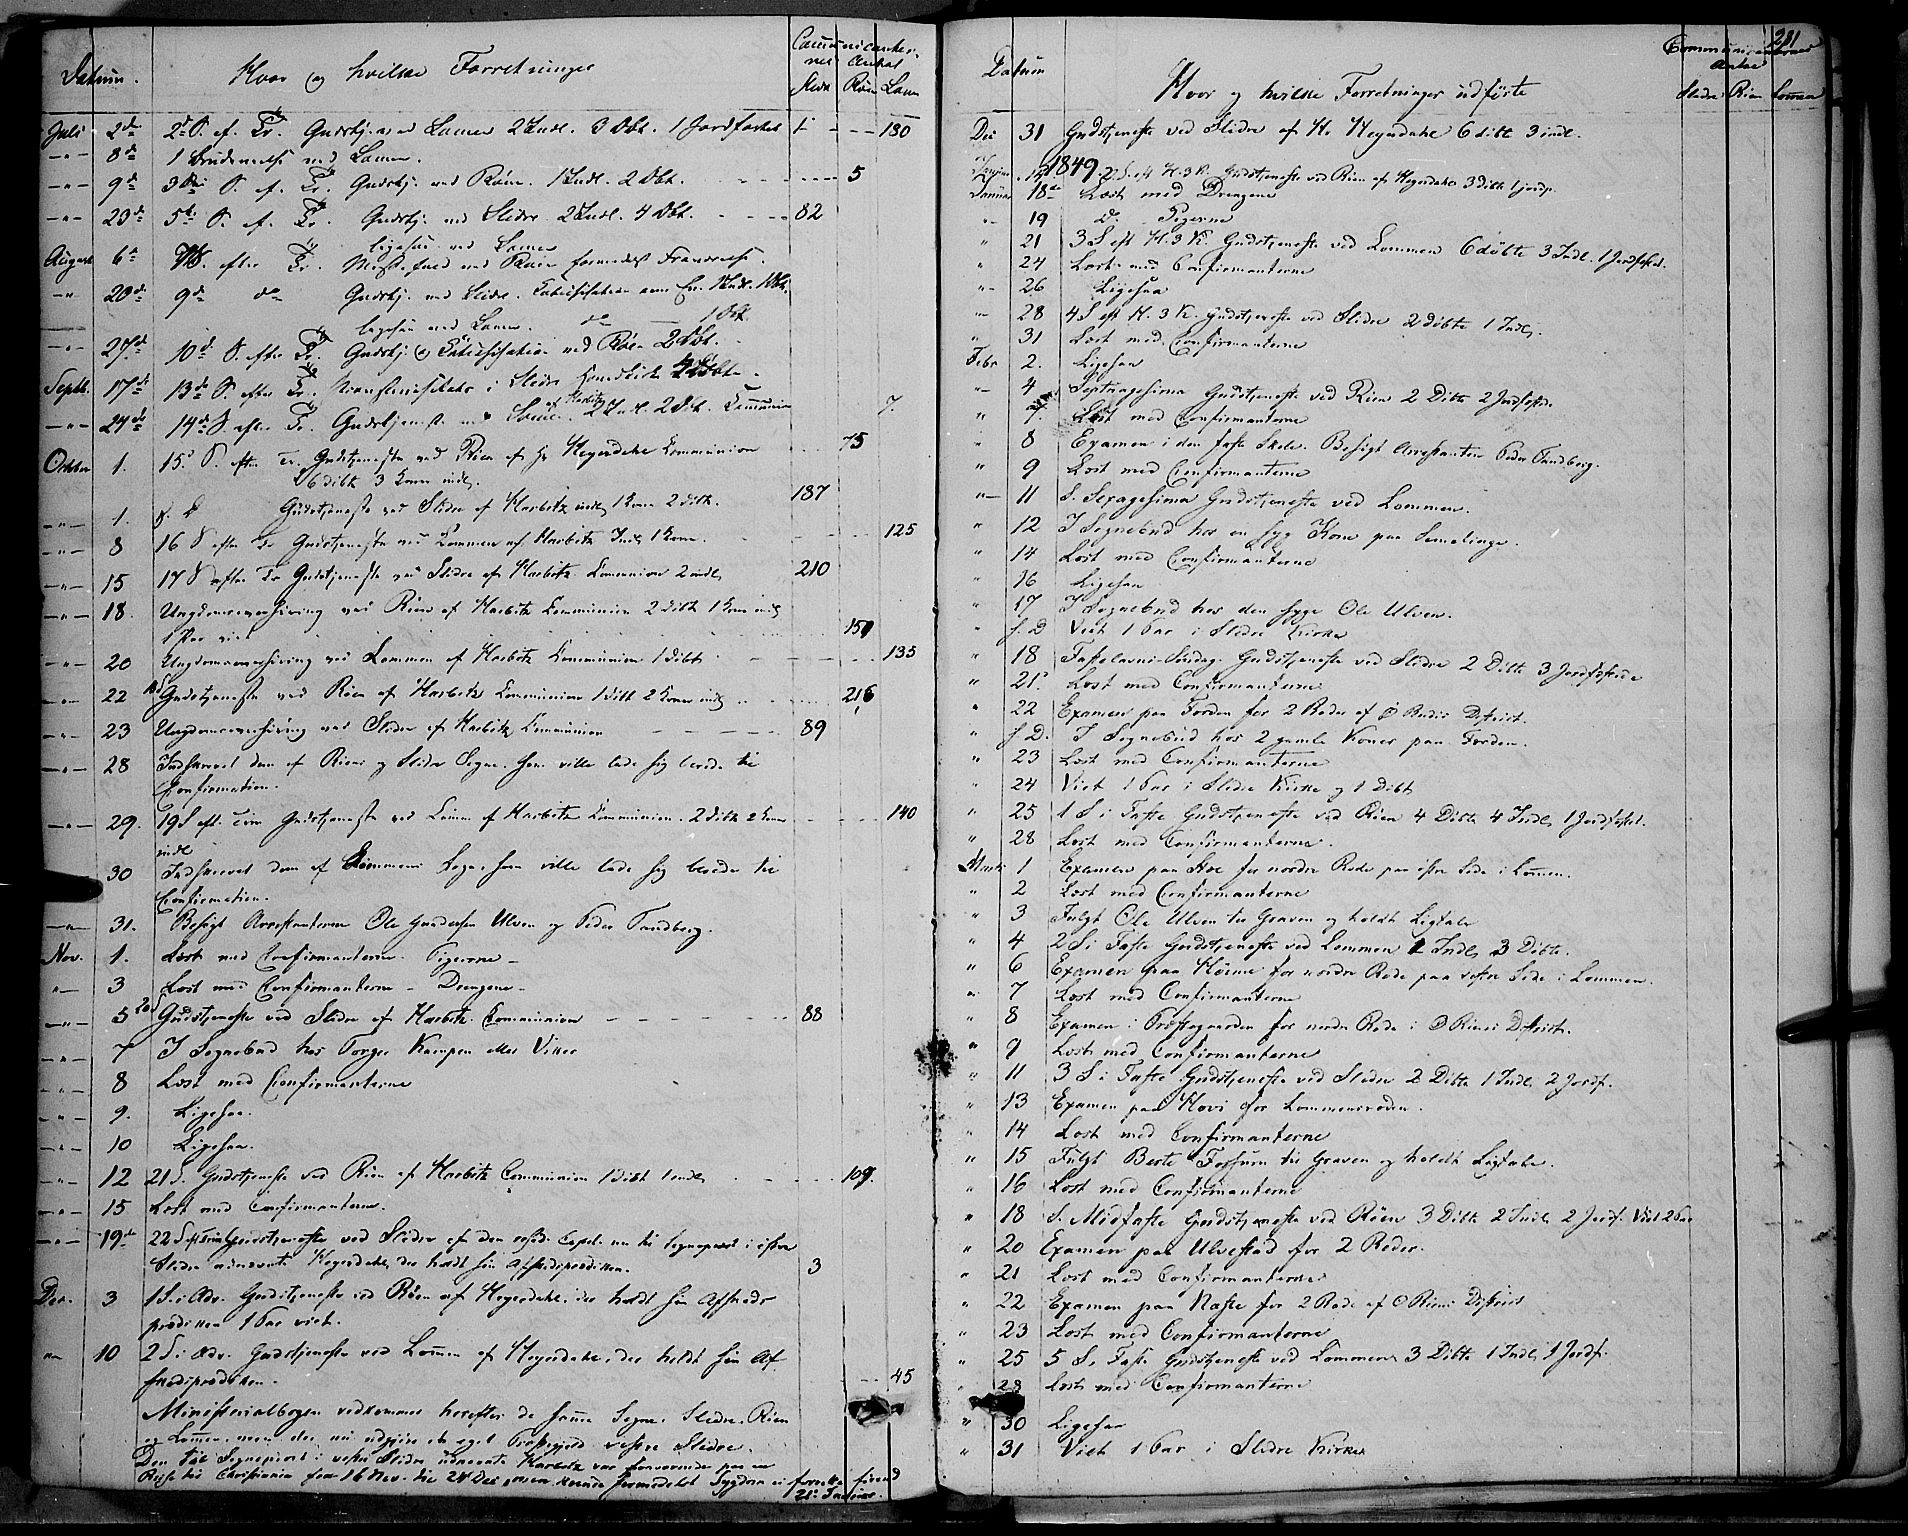 Datum. Hvor og hvilke Forretninger Communicanternes Antal
Slidre Røen Lomen
Juli 2den 2d S. ef. Tr. Gudstj. ved Lomen 2 Indl. 3 Dbt. 1 Jordfæstet 130
8de 1 Brudevielse ved Lomen.
9de 3die S. ef. Tr. Gudstj. ved Røen. 1 Indl. 2 Dbt. 5
23de 5te S. ef. Tr. Gudstj. ved Slidre. 2 Indl. 4 Dbt. 82
ligesaa ved Lomen
August 6te 7de S. efter Tr. Messefald ved Røen formedelst Fraværelse.
20de 9de do Gudstj. ved Slidre. Catechisation 1 Indl. 1 Dbt.
ligesaa ved Lomen. do 1 Dbt.
27de 10de S. efter Tr. Gudstj. og Catechisation ved Røen 2 Dbt.
Septb. 17de 13de S. efter Tr. i Slidre 4 Døbte.
24de 14de S. efter Tr. Gudstjeneste ved Lomen af Harbitz 2 Indl. 2 Dbt. Communion 7.
Octbr 1. 15. S. efter Tr. Gudstjeneste ved Røen af Hr Heyerdahl Communion 75
6 døbte 3 Koner indl.
1. s. d Gudstjeneste ved Slidre af Harbitz indl 1 Kone 2 døbte. 187
8 16 S efter Tr Gudstjeneste ved Lommen af Harbitz Indl 1 Kone. 125
15 17 S efter Tr Gudstjeneste ved Slidre af Harbitz. Communion 2 indl. 210
18. Ungdomsoverhøring ved Røen af Harbitz Communion 2 døbte 1 Kone indl
1 Par viet 151
20 Ungdomsoverhøring ved Lommen af Harbitz Communion 1 døbt 135
22 18 S Gudstjeneste ved Røen af Harbitz Communion 1 døbt 2 Koner indl 216
23 Ungdomsoverhøring ved Slidre af Harbitz Communion 89
28 Indskrevet dem af Røens og Slidre Sogne, som ville lade sig berede til
Confirmation.
29. 19 S eft. Trin Gudstjeneste ved Lomen af Harbitz Communion. 2 døbte 2 Koner 140
indl
30 Indskrevet dem af Lommens Sogn, som ville lade sig berede til
Confirmation.
31. Besøgt Arrestanterne Ole Gundersen Ulven og Peder Sandberg.
Nov. 1. Læst med Confirmanterne. Pigerne
3 Læst med Confirmanterne - Drengene
5 20 S Gudstjeneste ved Slidre af Harbitz. Communion 88
7 I Sognebud hos Torger Kampen eller Viker
8 Læst med Confirmanterne
9. Ligesaa.
10 Ligesaa.
12 21 S. Gudstjeneste ved Røen af Harbitz Communion 1 døbt 1 indl 109.
15 Læst med Confirmanterne.
19de 22 S eft Trin Gudstjeneste ved Slidre af den resid. Capel. nu til Sognepræst i østre
Slidre udnævnte Heyerdahl, der holdt sin Afskedsprædiken. 3
Dec. 3 1 S. i Adv. Gudstjeneste ved Røen af Heyerdahl, der holdt sin Afskeds
prædiken 1 Par viet.
10 2 S i Adv. Gudstjeneste ved Lomen af Heyerdahl, der holdt sin Af
skedsprædiken. 45
Ministerialbogen vedkommer herefter de samme Sogne. Slidre. Røen
og Lomen, men der nu udgjøre et eget Præstegjeld vestre Slidre.
Den til Sognepræst i vestre Slidre udnævnte Harbitz var fraværende paa en
Reise til Christiania fra 16 Nov. til 24 Dec, men kunde formedelst Sygdom ei forrette førend
21de Januar.
281
Datum Hvor og hvilke Forretninger udførte Communicanternes Antal
Slidre Røen Lommen
Dec 31 Gudstjeneste ved Slidre af Hr Heyerdahl 6 døbte 3 indl.
1849
14 2 S. eft H. 3 K. Gudstjeneste ved Røen af Heyerdahl 3 døbte 1 jordf.
Januar 18de Læst med Drengene
19 d. Pigerne
21 3 S eft H. 3 K. Gudstjeneste ved Lommen 6 døbte 3 Indl. 1 Jordfæstet.
24 Læst med Confirmanterne
26 Ligesaa
28 4 S eft H. 3 K. Gudstjeneste ved Slidre 2 døbte 1 Indl.
31 Læst med Confirmanterne
Febr 2. Ligesaa
4 Septuagesima Gudstjeneste ved Røen 2 Døbte 2 Jordfæstede.
7. Læst med Confirmanterne
8 Examen i den faste Skole. Besøgt Arrestanten Peder Sandberg.
9 Læst med Confirmanterne
11 S. Sexagesima Gudstjeneste ved Lommen.
12 I Sognebud hos en syg Kone paa Semelinge.
14 Læst med Confirmanterne
16 Ligesaa
17 I Sognebud hos den syge Ole Ulven.
s. D Viet 1 Par i Slidre Kirke
18 Fastelavns-Søndag. Gudstjeneste ved Slidre 2 Døbte 3 Jordfæstede
21. Læst med Confirmanterne
22 Examen paa Forden for 2 Roder af Ø. Røens District.
s. D. I Sognebud hos 2 gamle Koner paa Forden.
23 Læst med Confirmanterne
24 Viet 1 Par i Slidre Kirke og 1 Døbt
25 1 S i Faste Gudstjeneste ved Røen 4 Døbte 4 Indl. 1 Jordfæstet.
28 Læst med Confirmanterne.
Marts 1 Examen paa Hoe for nordre Rode paa østre Side i Lommen.
2 Læst med Confirmanterne
3 Fulgt Ole Ulven til Graven og holdt Ligtale
4 2 S i Faste Gudstjeneste ved Lommen 1 Indl. 3 Døbte.
6 Examen paa Hørne for nordre Rode paa vestre Side i Lommen.
7 Læst med Confirmanterne
8 Examen i Præstegaarden for nordre Rode i Ø Røens District.
9 Læst med Confirmanterne
11 3 S i Faste Gudstjeneste ved Slidre 2 Døbte 1 Indl. 2 Jordf.
13 Examen paa Hovi for Lommensroden.
14 Læst med Confirmanterne
15 Fulgt Berte Fossum til Graven og holdt Ligtale.
16 Læst med Confirmanterne
18 S. Midfaste Gudstjeneste ved Røen 3 Døbte 2 Indl. 2 Jordf. Viet 2 Par
20 Examen paa Ulvestad for 2 Roder.
21 Læst med Confirmanterne
22 Examen paa Næste for 2 Rode af Ø Røens District
23 Læst med Confirmanterne
25 5 S. Faste Gudstjeneste ved Lommen 3 Døbte 1 Indl 1 Jordf.
28 Læst med Confirmanterne
30 Ligesaa
31 Viet 1 Par i Slidre Kirke